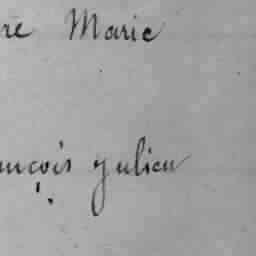 re Marie
ançois Julien